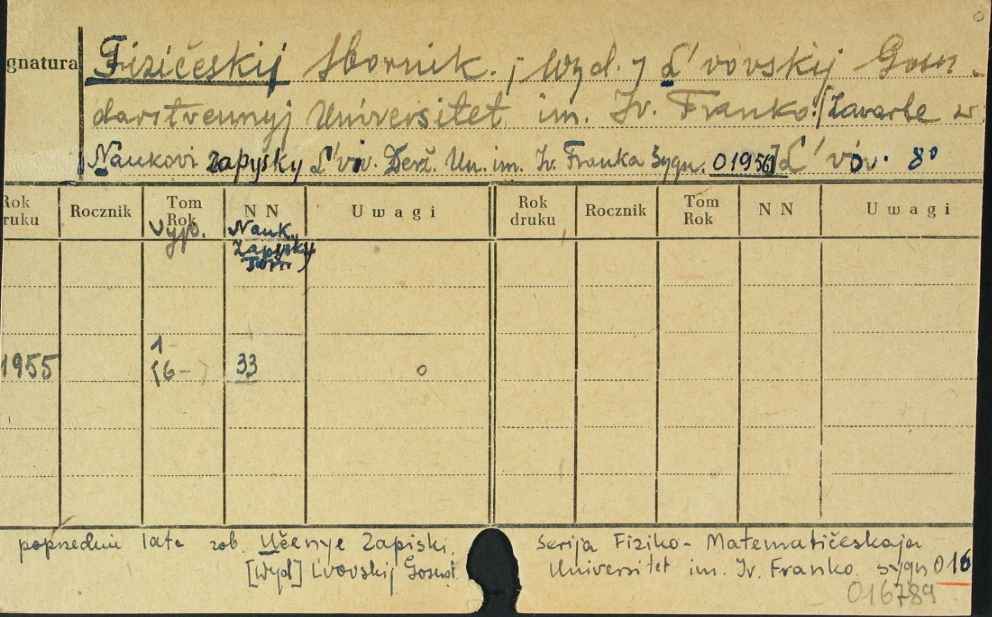 gnatura Fizičeskij Sbornik. ; Wyd. L'vovskij Gosu-
darstvennyj Universitet im. Iv. Franko. [Zawarte w:
Naukovi zapysky L'viv. Derž. Un. im. Iv. Franka Sygn. 01956] L'vóv. 8°
Rok druku Rocznik Tom Rok N N Uwagi Rok druku Rocznik Tom Rok N N Uwagi
Vyp. Nauk. Zapysky Tom
1-
1955 (6-) 33 o
poprzednie lata zob. Učenye Zapiski. Serija Fiziko-Matematičeskaja
[Wyd] L'vovskij Gosud. Universitet im. Iv. Franko. sygn 016
016789